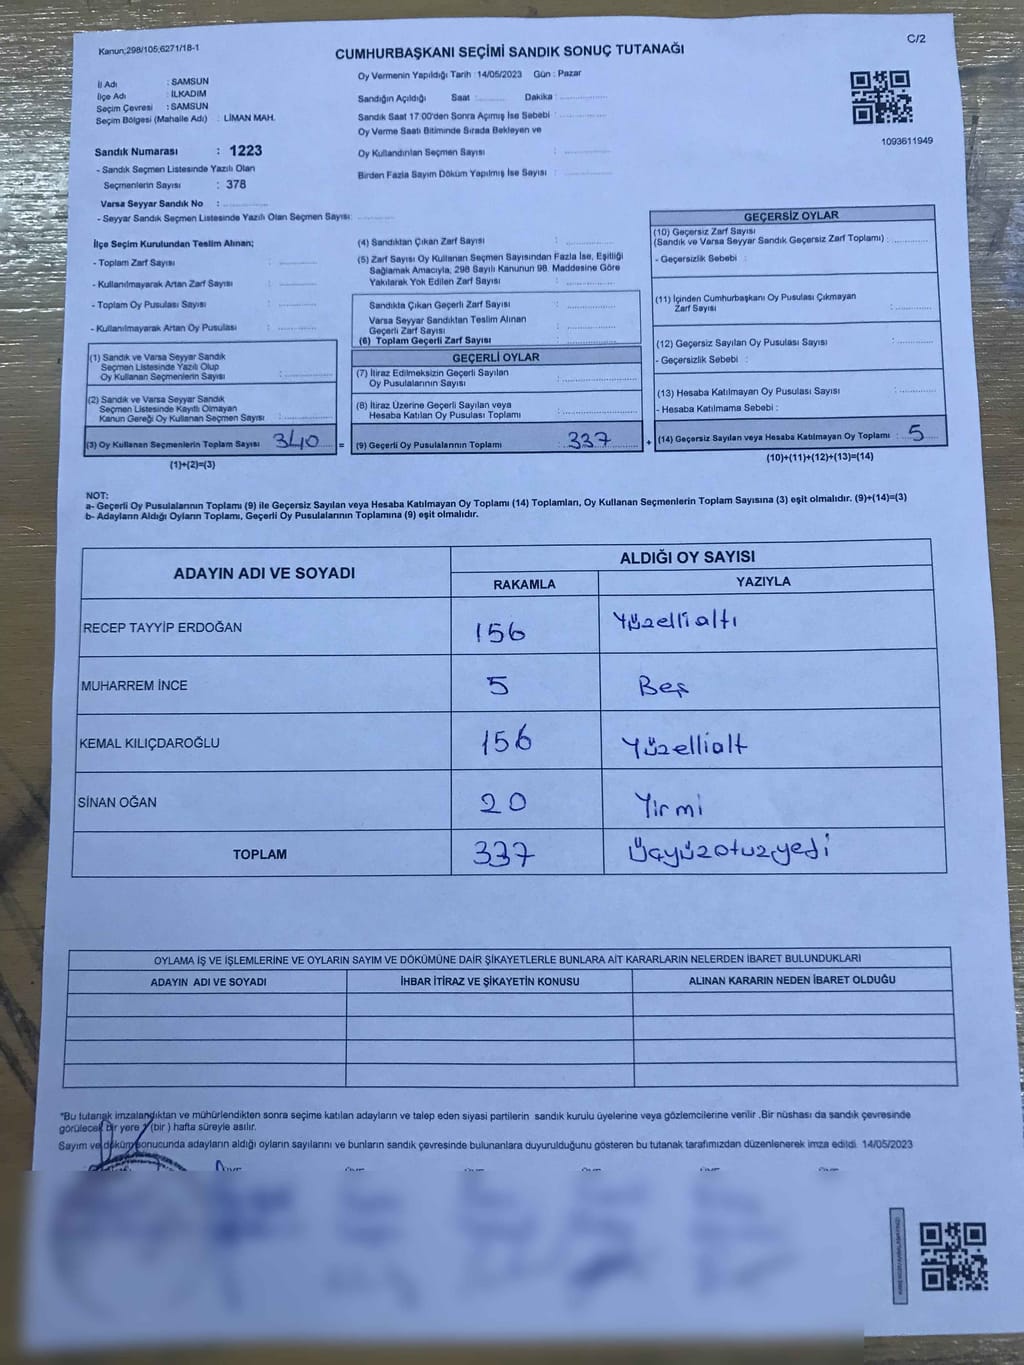 Kanun;298/105;6271/18-1
C/2
CUMHURBAŞKANI SEÇİMİ SANDIK SONUÇ TUTANAĞI
İl Adı : SAMSUN
İlçe Adı : İLKADIM
Seçim Çevresi : SAMSUN
Seçim Bölgesi (Mahalle Adı) : LİMAN MAH.
Sandık Numarası : 1223
- Sandık Seçmen Listesinde Yazılı Olan
Seçmenlerin Sayısı : 378
Varsa Seyyar Sandık No :
- Seyyar Sandık Seçmen Listesinde Yazılı Olan Seçmen Sayısı:
Oy Vermenin Yapıldığı Tarih : 14/05/2023 Gün : Pazar
Sandığın Açıldığı Saat : Dakika :
Sandık Saat 17:00'den Sonra Açımış İse Sebebi :
Oy Verme Saati Bitiminde Sırada Bekleyen ve
Oy Kullandırılan Seçmen Sayısı :
Birden Fazla Sayım Döküm Yapılmış İse Sayısı :
1093611949
İlçe Seçim Kurulundan Teslim Alınan;
- Toplam Zarf Sayısı :
- Kullanılmayarak Artan Zarf Sayısı :
- Toplam Oy Pusulası Sayısı :
- Kullanılmayarak Artan Oy Pusulası :
(1) Sandık ve Varsa Seyyar Sandık
Seçmen Listesinde Yazılı Olup
Oy Kullanan Seçmenlerin Sayısı :
(2) Sandık ve Varsa Seyyar Sandık
Seçmen Listesinde Kayıtlı Olmayan
Kanun Gereği Oy Kullanan Seçmen Sayısı :
(3) Oy Kullanan Seçmenlerin Toplam Sayısı : 340 =
(1)+(2)=(3)
(4) Sandıktan Çıkan Zarf Sayısı :
(5) Zarf Sayısı Oy Kullanan Seçmen Sayısından Fazla İse, Eşitliği
Sağlamak Amacıyla, 298 Sayılı Kanunun 98. Maddesine Göre
Yakılarak Yok Edilen Zarf Sayısı :
Sandıkta Çıkan Geçerli Zarf Sayısı :
Varsa Seyyar Sandıktan Teslim Alınan
Geçerli Zarf Sayısı :
(6) Toplam Geçerli Zarf Sayısı :
GEÇERLİ OYLAR
(7) İtiraz Edilmeksizin Geçerli Sayılan
Oy Pusulalarının Sayısı :
(8) İtiraz Üzerine Geçerli Sayılan veya
Hesaba Katılan Oy Pusulası Toplamı :
(9) Geçerli Oy Pusulalarının Toplamı : 337 +
GEÇERSİZ OYLAR
(10) Geçersiz Zarf Sayısı
(Sandık ve Varsa Seyyar Sandık Geçersiz Zarf Toplamı) :
- Geçersizlik Sebebi :
(11) İçinden Cumhurbaşkanı Oy Pusulası Çıkmayan
Zarf Sayısı :
(12) Geçersiz Sayılan Oy Pusulası Sayısı :
- Geçersizlik Sebebi :
(13) Hesaba Katılmayan Oy Pusulası Sayısı :
- Hesaba Katılmama Sebebi :
(14) Geçersiz Sayılan veya Hesaba Katılmayan Oy Toplamı : 5
(10)+(11)+(12)+(13)=(14)
NOT:
a- Geçerli Oy Pusulalarının Toplamı (9) ile Geçersiz Sayılan veya Hesaba Katılmayan Oy Toplamı (14) Toplamları, Oy Kullanan Seçmenlerin Toplam Sayısına (3) eşit olmalıdır. (9)+(14)=(3)
b- Adayların Aldığı Oyların Toplamı, Geçerli Oy Pusulalarının Toplamına (9) eşit olmalıdır.
ADAYIN ADI VE SOYADI
ALDIĞI OY SAYISI
RAKAMLA YAZIYLA
RECEP TAYYİP ERDOĞAN 156 Yüzellialtı
MUHARREM İNCE 5 Beş
KEMAL KILIÇDAROĞLU 156 Yüzellialt
SİNAN OĞAN 20 Yirmi
TOPLAM 337 Üçyüzotuzyedi
OYLAMA İŞ VE İŞLEMLERİNE VE OYLARIN SAYIM VE DÖKÜMÜNE DAİR ŞİKAYETLERLE BUNLARA AİT KARARLARIN NELERDEN İBARET BULUNDUKLARI
ADAYIN ADI VE SOYADI İHBAR İTİRAZ VE ŞİKAYETİN KONUSU ALINAN KARARIN NEDEN İBARET OLDUĞU
*Bu tutanak imzalandıktan ve mühürlendikten sonra seçime katılan adayların ve talep eden siyasi partilerin sandık kurulu üyelerine veya gözlemcilerine verilir .Bir nüshası da sandık çevresinde
görülecek bir yere 1 (bir ) hafta süreyle asılır.
Sayım ve döküm sonucunda adayların aldığı oyların sayılarını ve bunların sandık çevresinde bulunanlara duyurulduğunu gösteren bu tutanak tarafımızdan düzenlenerek imza edildi. 14/05/2023